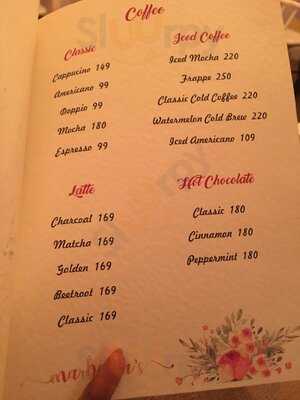 Coffee
Classic
Cappucino 149
Americano 99
Doppio 99
Mocha 180
Espresso 99
Iced Coffee
Iced Mocha 220
Frappe 250
Classic Cold Coffee 220
Watermelon Cold Brew 220
Iced Americano 109
Latte
Charcoal 169
Matcha 169
Golden 169
Beetroot 169
Classic 169
Hot Chocolate
Classic 180
Cinnamon 180
Peppermint 180